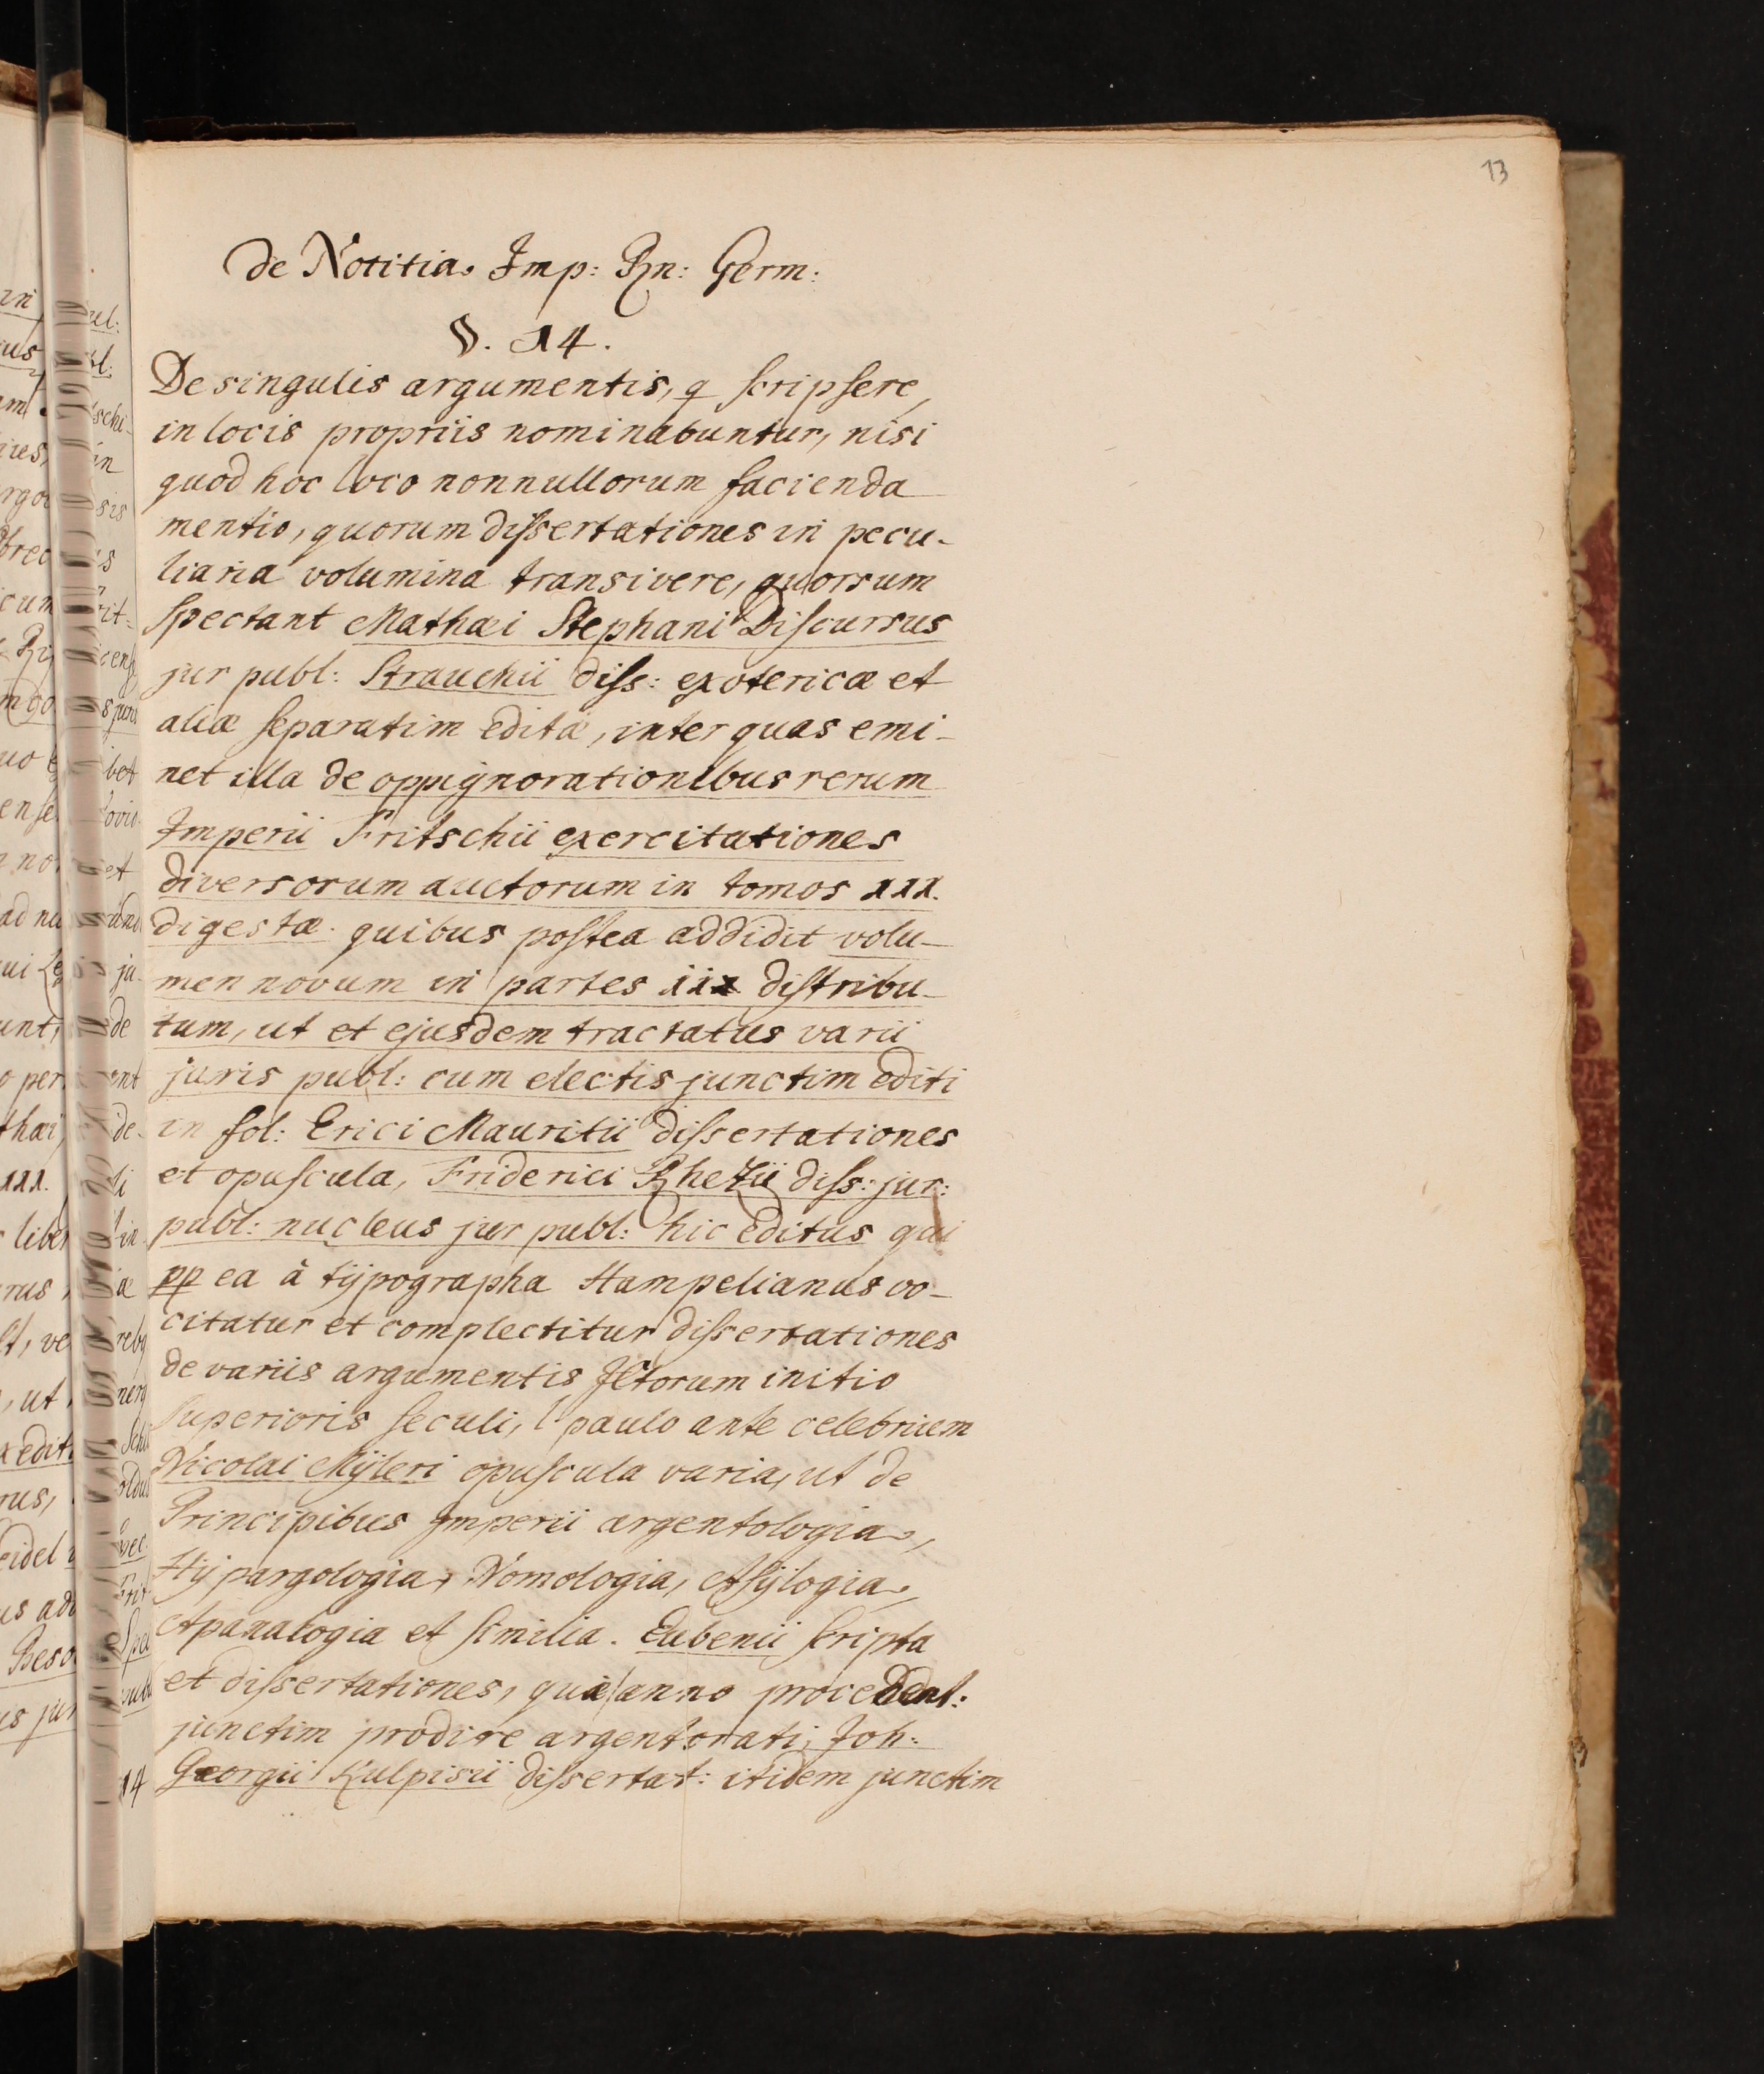 13
de Notitia Imp: Rn: Germ:
§. 14.
De singulis argumentis, q scripsere,
in locis propriis nominabuntur, nisi
quod hoc loco nonnullorum facienda
mentio, quorum dissertationes in pecu-
liaria volumina transivere, quorsum
spectant Mathæi Stephani Discursus
jur publ: Strauchii diss: exotericæ et
aliæ separatim editæ, inter quas emi-
net illa de oppignorationibus rerum
Imperii Fritschii exercitationes
diversorum auctorum in tomos xxx.
digestæ. quibus postea addidit volu-
men novum in partes iix distribu-
tum, ut et ejusdem tractatus varii
juris publ: cum electis junctim editi
in fol: Erici Mauritii dissertationes
et opuscula, Friderici Rhetii diss: jur:
publ: nucleus jur publ: hic editus qui
pp ea à typographa Hampelianus vo-
citatur et complectitur dissertationes
de variis argumentis Jctorum initio
superioris seculi, l paulo ante celebrium
Nicolai Myleri opuscula varia, ut de
Principibus Imperii argentologia,
Hypargologia, Nomologia, Asylogia,
Apanalogia et similia. Eubenii scripta
et dissertationes, quæ anno procedent:
junctim prodire argentorati, Joh:
Georgii Kulpisii dissertat: itidem junctim